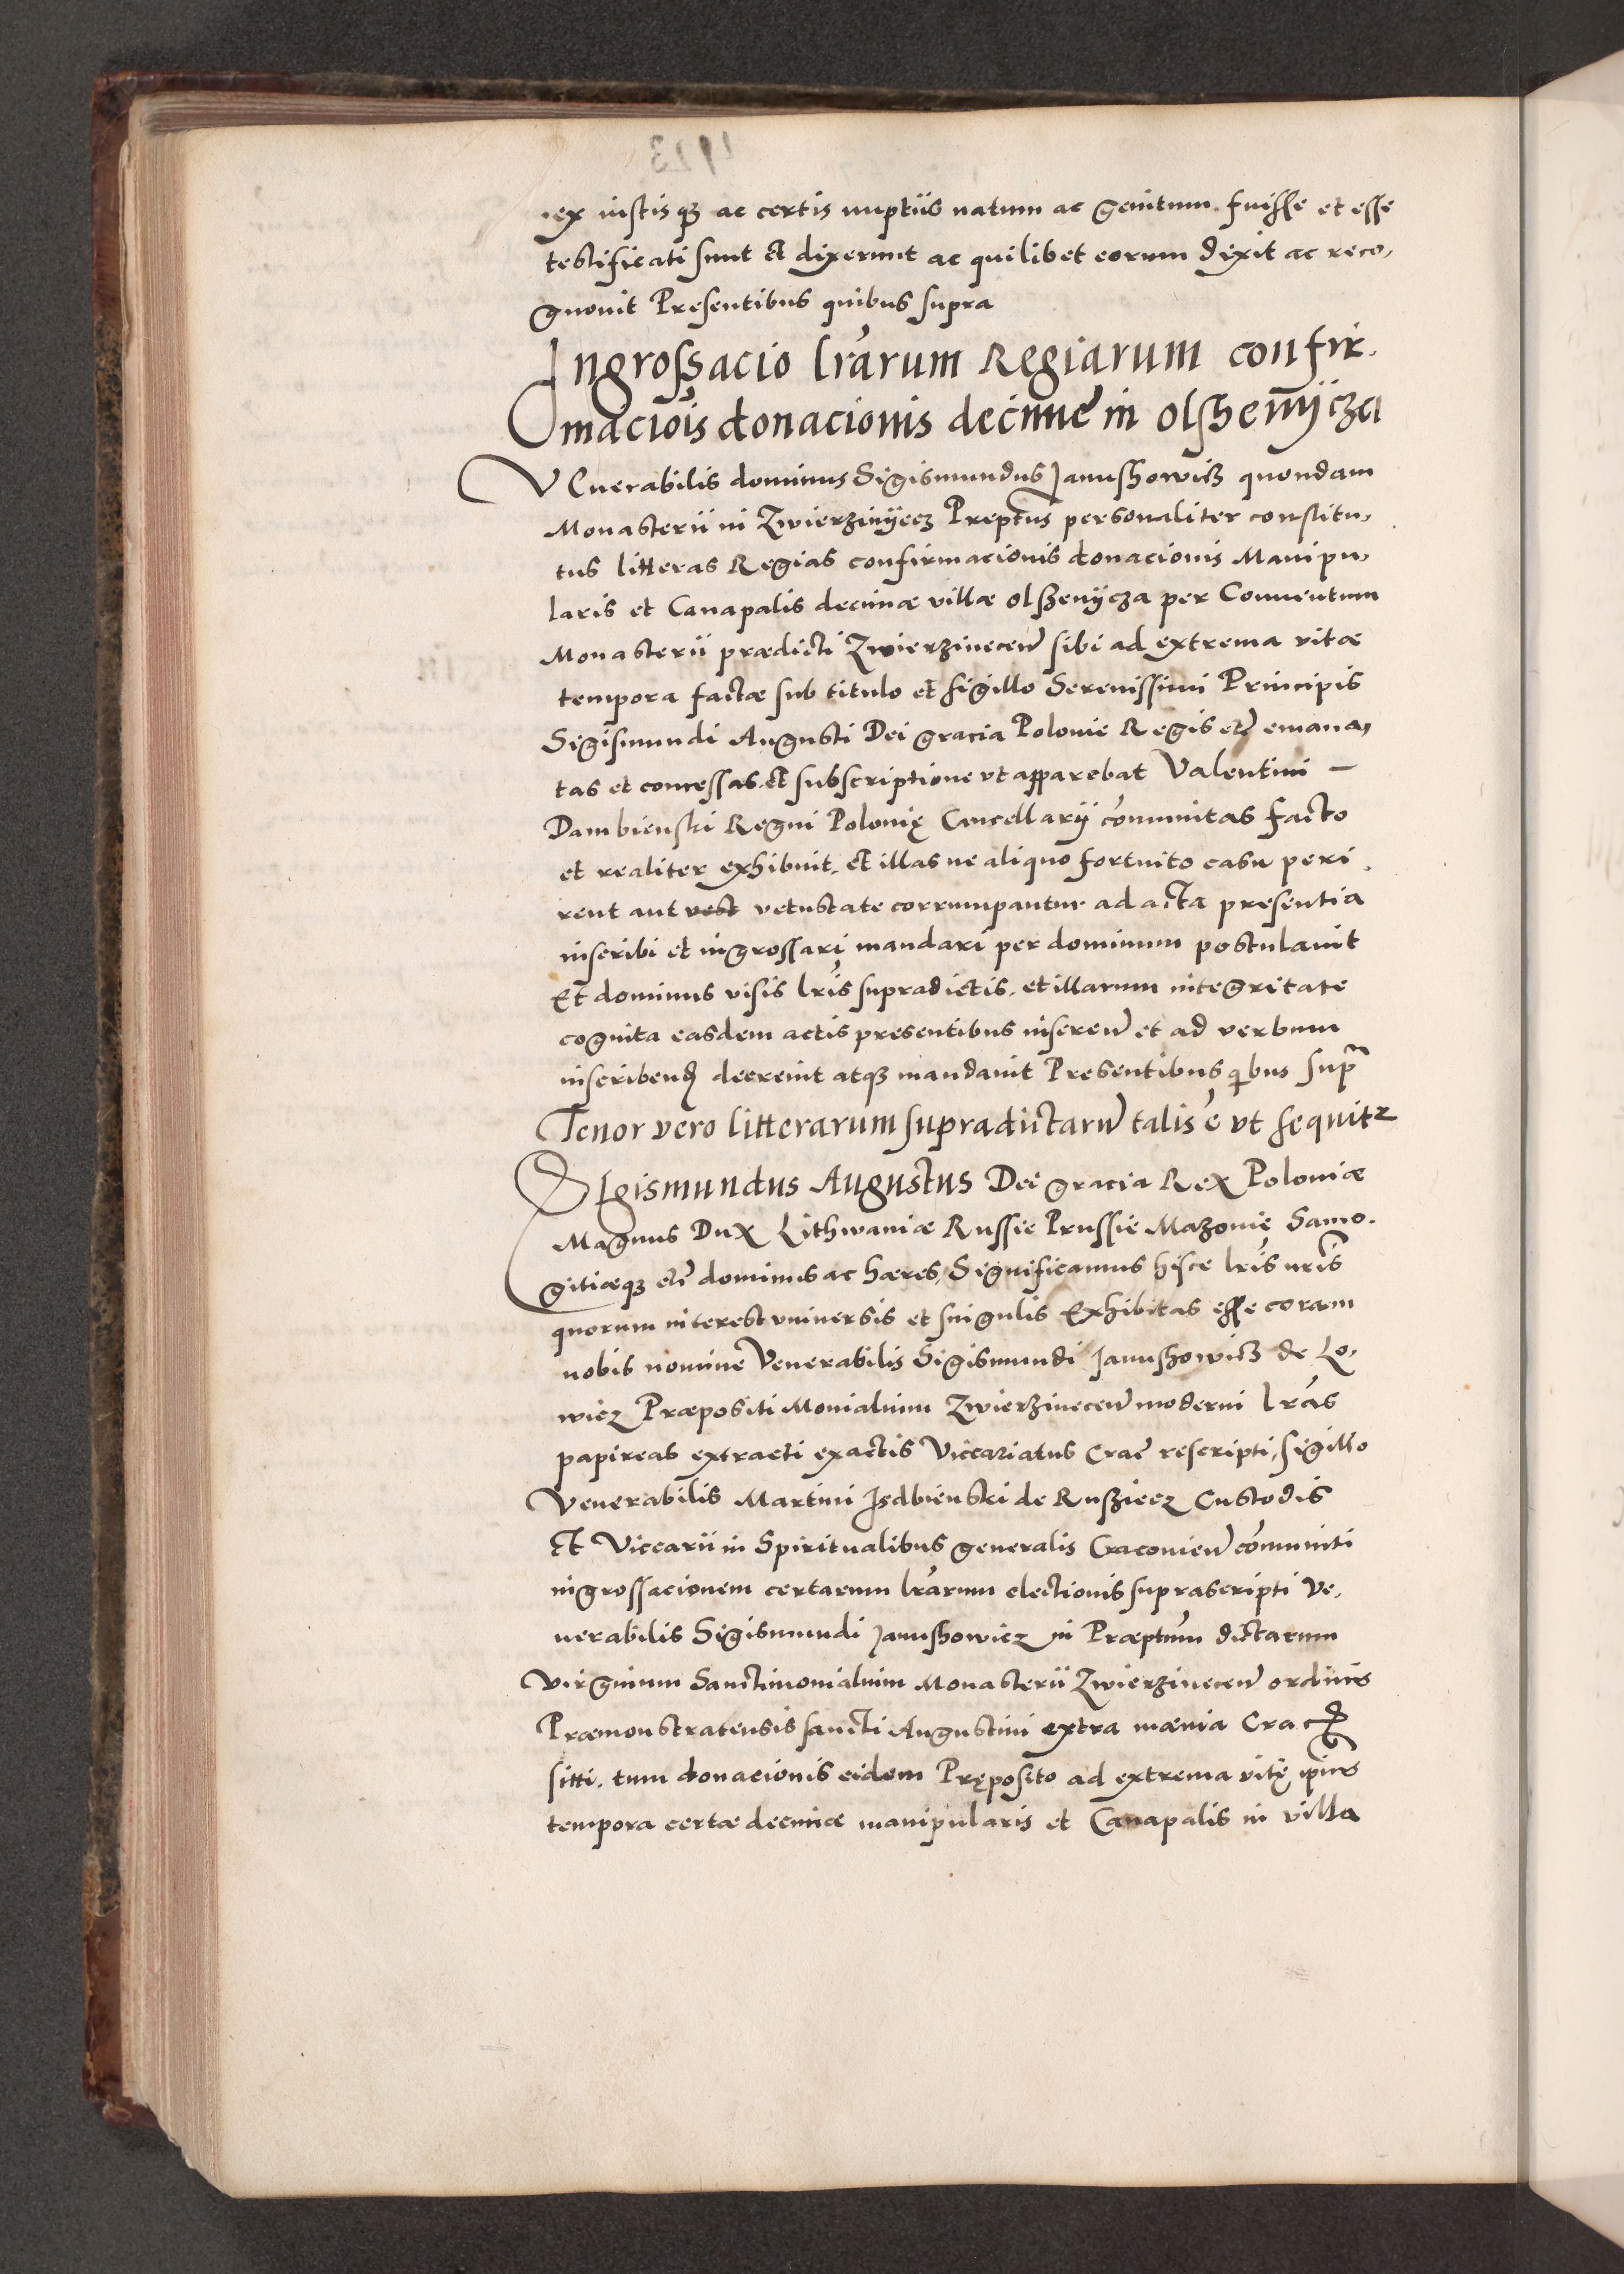 ex iustisq₃ ac certis nuptiis natum ac genitum fuisse et esse
testificati sunt et dixerunt ac quilibet eorum dixit ac reco,
gnouit Presentibus quibus supra
Ingrossacio lr̃arum Regiarum confir.
maciois donacionis decime in olsheniÿcza
VEnerabilis dominus Sigismundus Janushowicz quondam
Monasterii in Zwierziniÿecz Preptus personaliter constitu,
tus litteras Regias confirmacionis donacionis Manipu,
laris et Canapalis decimæ villæ olszeniÿcza per Conuentum
Monasterii prædicti Zwierzinecen̄ sibi ad extrema vitæ
tempora factæ sub titulo et sigillo Serenissimi Principis
Sigismundi Augusti Dei gracia Polonie Regis etc̄ emana,
tas et concessas et subscriptione vt apparebat Valentini —
Dambienski Regni Polonię Cancellarÿ cõmunitas facto
et realiter exhibuit, et illas ne aliquo fortuito casu peri.
rent aut vetustate corrumpantur ad acta presentia
inscribi et ingrossari mandari per dominum postulauit
Et dominus visis lr̃is supradictis, et illarum integritate
cognita easdem actis presentibus inseren̄ et ad verbum
inscribend̄ decreuit atq₃ mandauit Presentibus qibus supr̄
Tenor vero litterarum supradictarum̄ talis ẽ vt sequitr
SIgismundus Augustus Dei gracia Rex Poloniæ
Magnus Dux Lithwaniæ Russie Prussie Mazouię Samo.
gitiæq₃ etc̄ dominus ac hæres, Significamus hisce lr̃is nr̃is
quorum interest vniuersis et singulis Exhibitas esse coram
nobis nomine Venerabilis Sigismundi Janushowicz de Lo,
wicz Præpositi Monialium Zwierzinecen̄ moderni lr̃as
papireas extracti ex actis Vicariatus Crac̄ rescripti, sigillo
Venerabilis Martini Isdbienski de Rusziecz Custodis
Et Vicearii in Spiritualibus generalis Cracouien̄ cõmuniti
ingrossacionem certarum lr̃arum electionis suprascripti Ve,
nerabilis Sigismundi Janushowicz in Præptum dictarum
Virginum Sanctimonialium Monasterii Zwierzinecen̄ ordinis
Præmonstratensis sancti Augustini extra mænia Crac
sitti. tum donacionis eidem Pręposito ad extrema vitę ipius
tempora certæ decimæ manipularis et Canapalis in villa